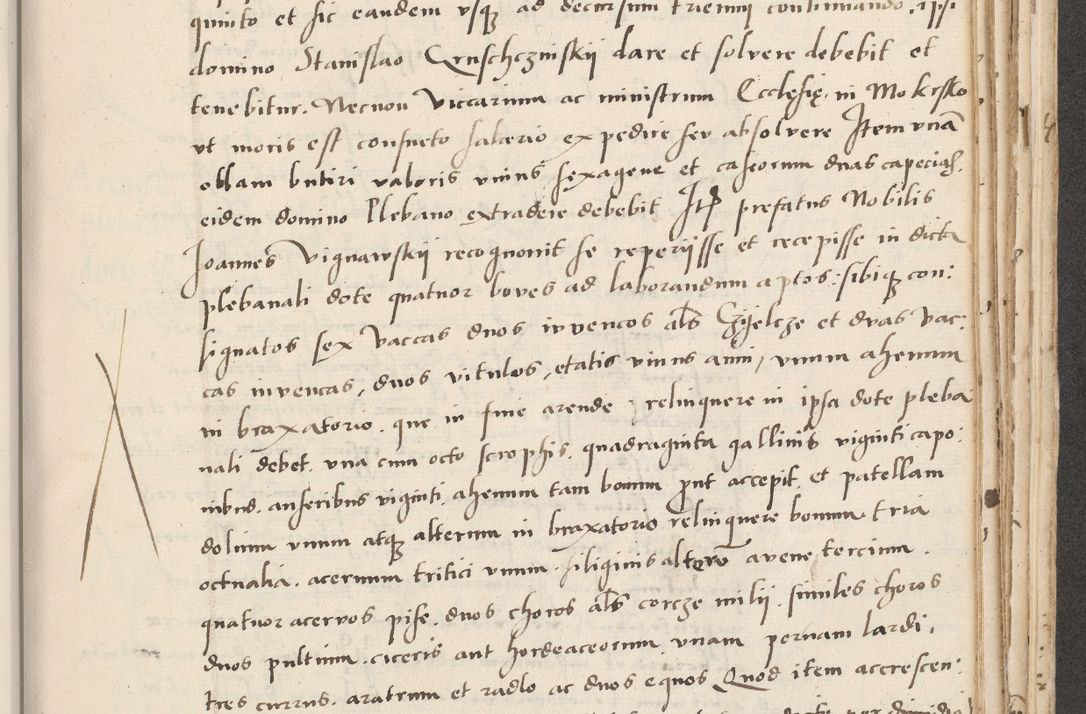 quinto et sic eandem usq₃ ad decursum triennii continuando, ipsi
domino Stanislao Cruschczinskij dare et solvere debebit et
tenebitur. Necnon Viccarium ac ministrum Ecclesię in Mokrsko
ut moris est consueto salario expedire seu absolvere Item unā
ollam butiri valoris unius sexagene et caseorum duas
eidem domino Plebano extradere debebit Itē prefatus Nobilis
Joannes Vignawskij recognovit se reperijsse et recepisse in dicta
plebanali dote quatuor boves ad laborandum aptos: sibiq₃ con:
signatos sex Vaccas duos iuvencos als Czijelcze et duas Vac:
cas iuvencas, duos vitulos, etatis unius anni, unum ahenum
in braxatorio. que in fine arende relinquere in ipsa dote pleba
nali debet. una cum octo scrophis, quadraginta gallinis viginti capo:
nibus. anseribus viginti. ahenum tam bonum put accepit. et patellam
dolium unum atq₃ alterum in braxatorio relinquere bonum. tria
octualia. acervum tritici unum. siliginis alterū avene tercium.
quatuor acervos pise. duos choros als corcze milij. similes choros
duos pultium. ciceris aut hordeaceorum. unam pernam lardi,
tres currus. aratrum et radlo ac duos equos Quod item accrescen: